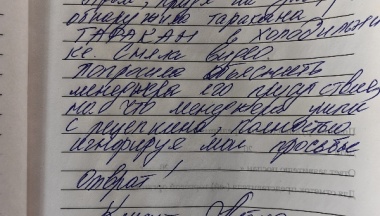 обнаружила таракана
ТАРАКАН в холодильни
ке. Сняла видео.
Попросила объяснить
менеджера его присутствие,
на что менеджера
с ресепшена, полностью
игнорируя мои просьбы
Отврат!